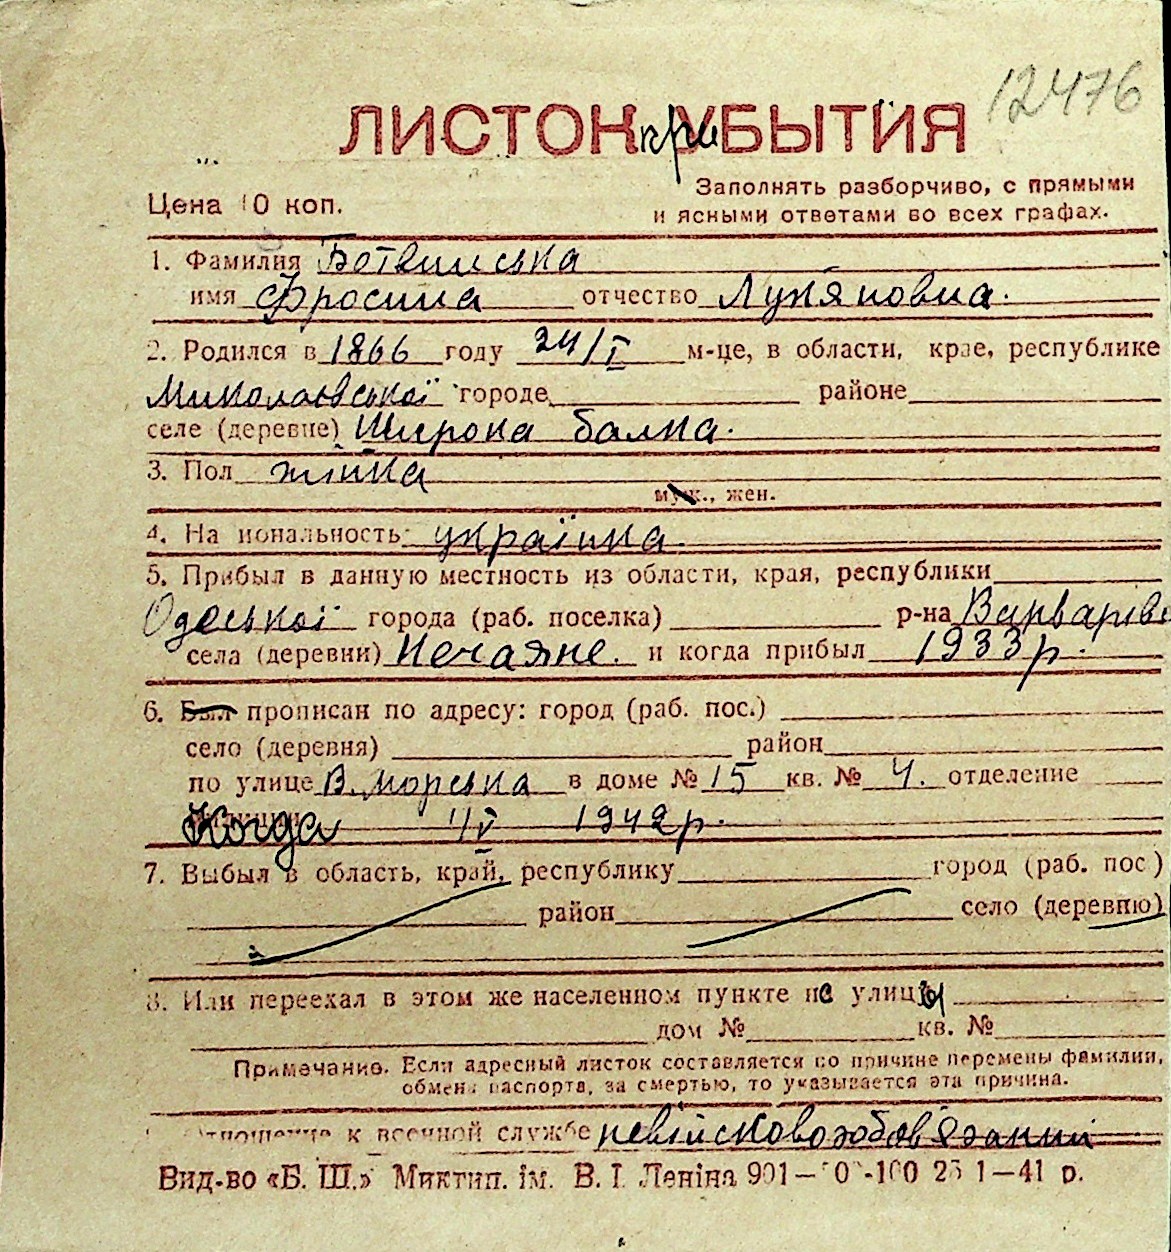 12476
ЛИСТОК при УБЫТИЯ
Цена 10 коп.
Заполнять разборчиво, с прямыми
и ясными ответами во всех графах.
1. Фамилия Ботвинська
имя Фросина отчество Лукяновна.
2. Родился в 1866 году 24/I м-це, в области, крае, республике
Миколаївської городе районе
селе (деревне) Широка балка.
3. Пол жінка
муж., жен.
4. На иональность українка.
5. Прибыл в данную местность из области, края, республики
Одеської города (раб. поселка) р-на Варварівс
села (деревни) Нечаяне. и когда прибыл 1933 р.
6. Был прописан по адресу: город (раб. пос.)
село (деревня) район
по улице В. морська в доме № 15 кв. № 4. отделение
Когда 1/V 1942 р.
7. Выбыл в область, край, республику город (раб. пос)
район село (деревню)
8. Или переехал в этом же населенном пункте с улицы
дом № кв. №
Примечание. Если адресный листок составляется по причине перемены фамилии,
обмена паспорта, за смертью, то указывается эта причина.
Отношение к военной службе невійсковозобов'язанні
Вид-во «Б. Ш.» Миктип. ім. В. І. Леніна 901— 0 -100 1—41 р.